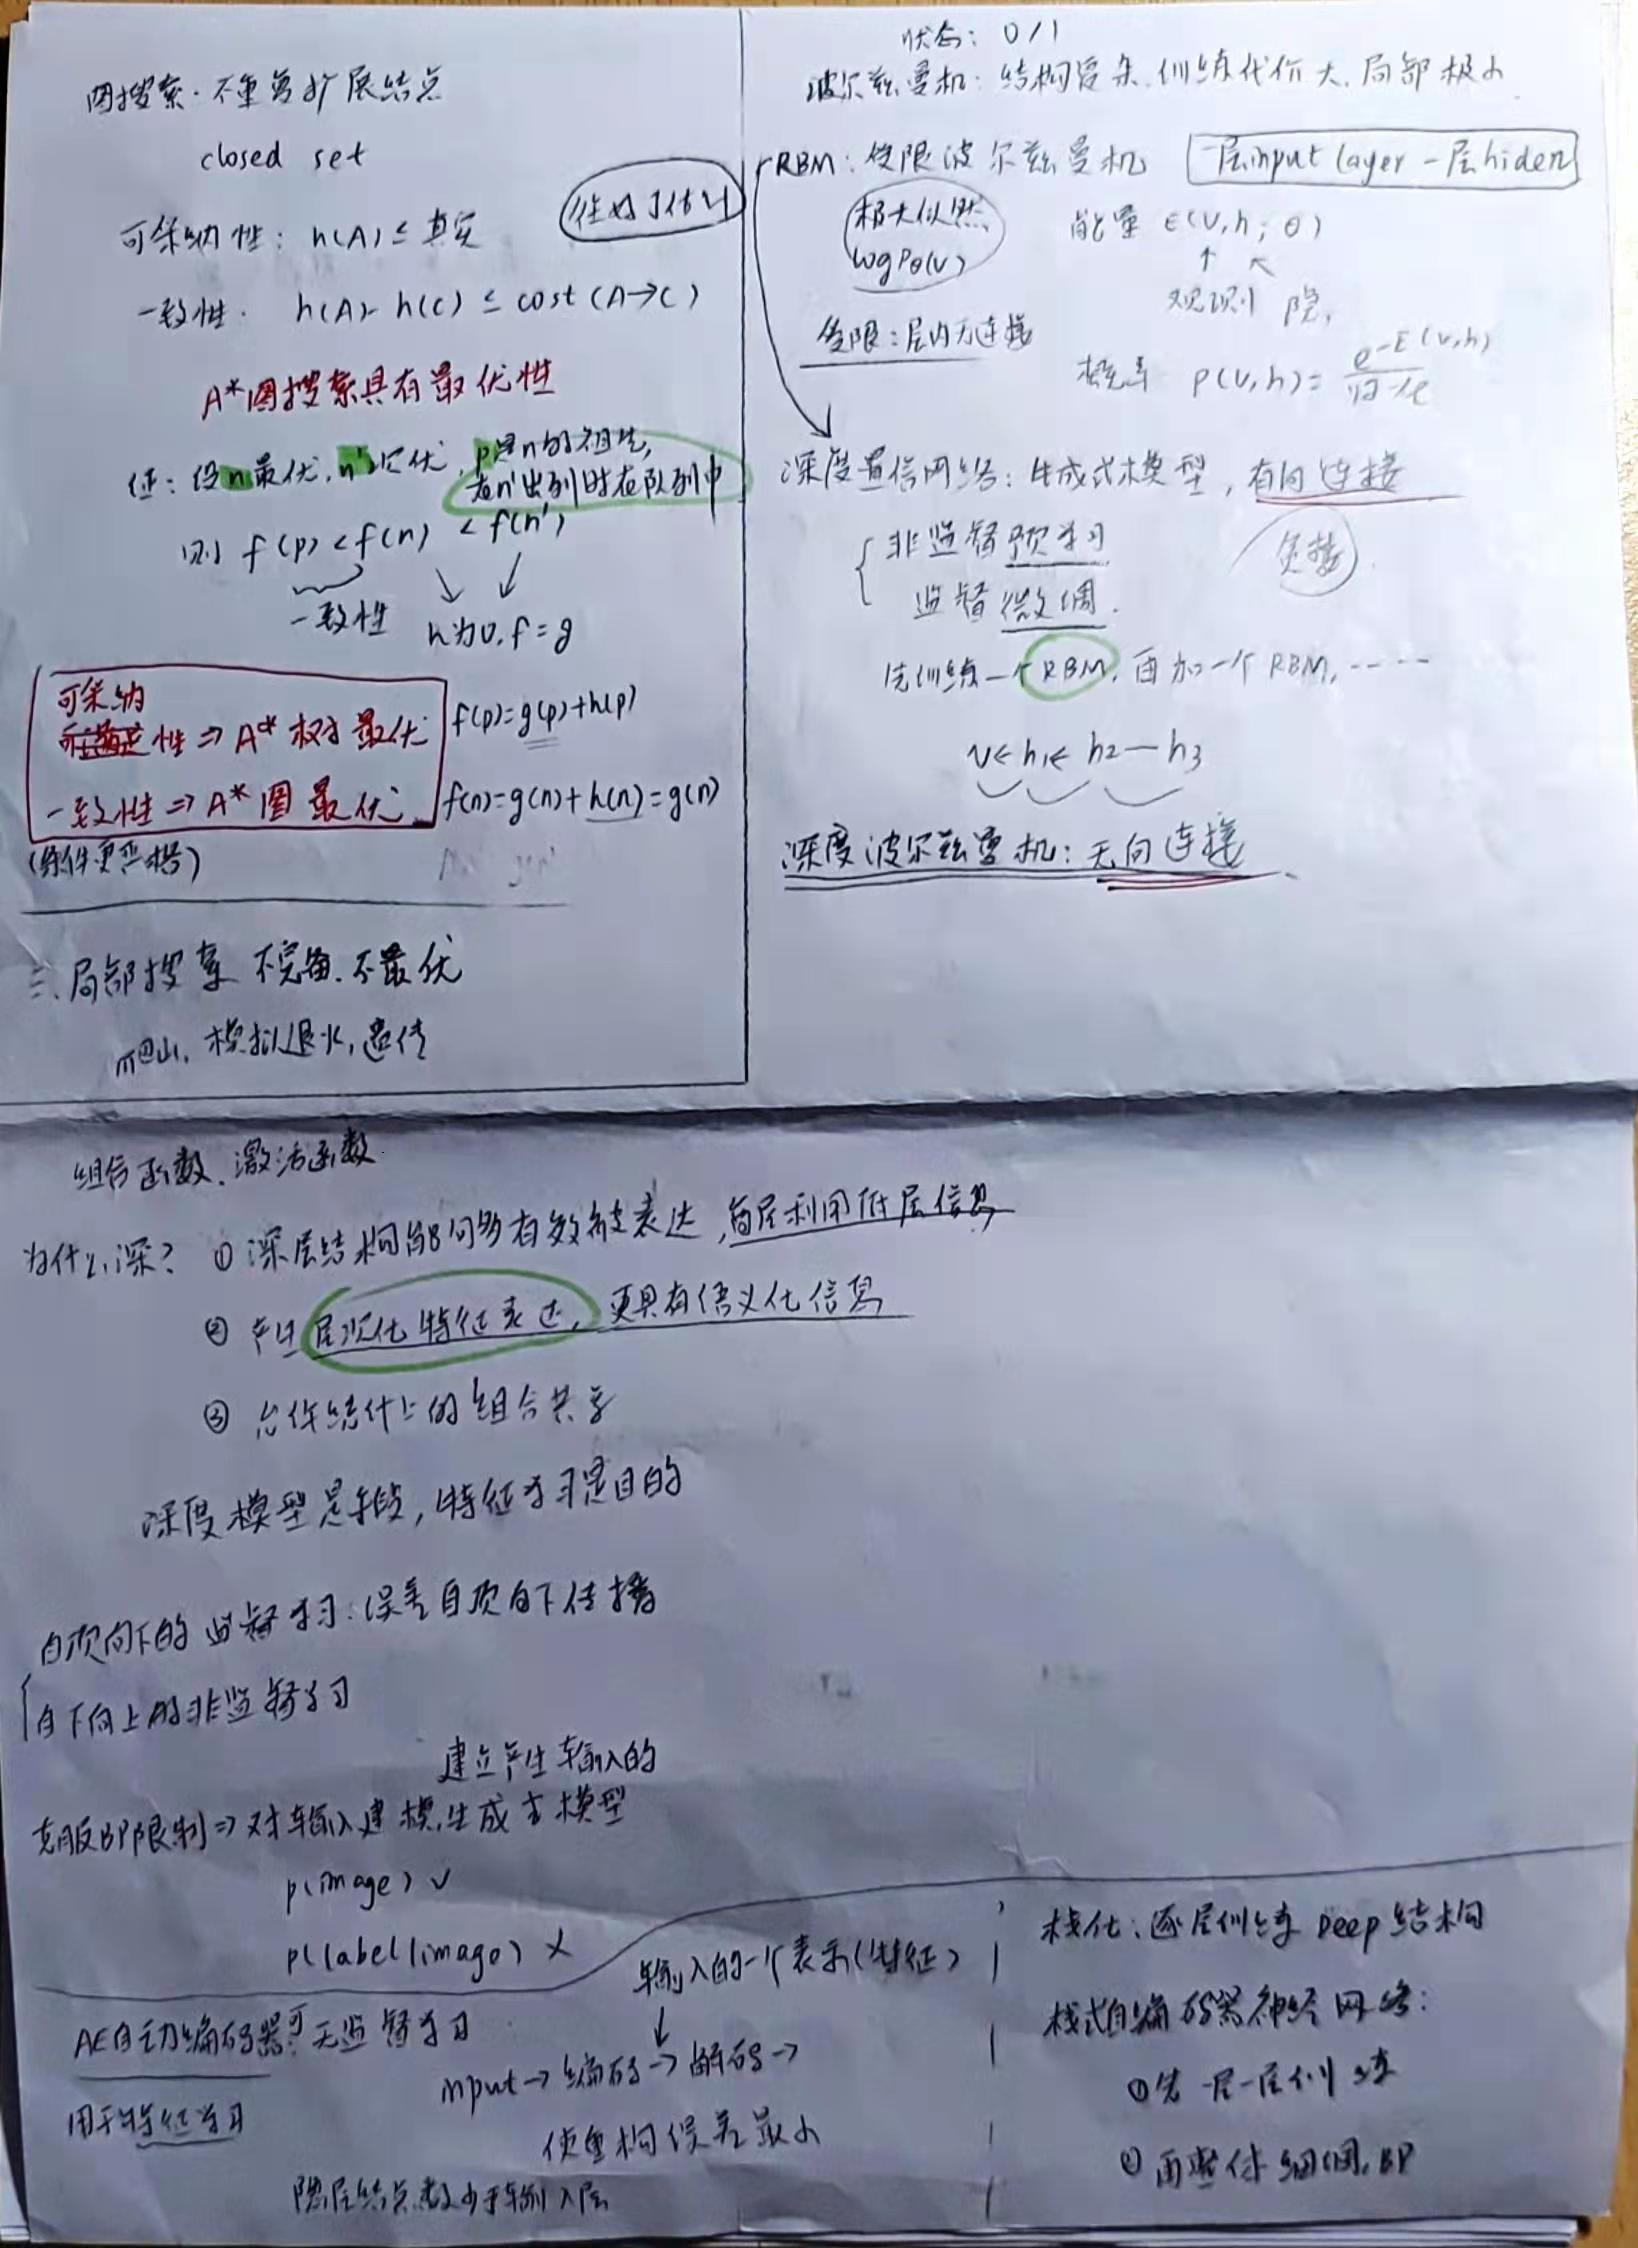 图搜索·不重复扩展结点
closed set
可采纳性: h(A) ≤ 真实
往好了估计
一致性· h(A)- h(C) ≤ cost (A→C)
A*图搜索具有最优性
证: 设n最优, n'次优, p是n的祖先,
在n'出列时在队列中
则 f(p) < f(n) < f(n')
一致性
h为0, f = g
可采纳
性 ⇒ A* 树 最优
f(p)=g(p)+h(p)
一致性 ⇒ A* 图 最优
f(n)=g(n)+h(n)=g(n)
(条件更严格)
三、局部搜索 不完备、不最优
爬山, 模拟退火, 遗传
状态: 0/1
波尔兹曼机: 结构复杂.训练代价大.局部极小
RBM: 受限波尔兹曼机 一层input layer 一层hiden
极大似然
log Pθ(v)
能量 E(v,h; θ)
↑ ↖
观测 隐,
受限: 层内无连接
概率 P(v,h) = e^-E(v,h) / 归一化
深度置信网络: 生成式模型, 有向连接
{ 非监督预学习
监督微调.
先训练一个RBM, 再加一个RBM, ……
v ← h1 ← h2 — h3
深度波尔兹曼机: 无向连接
组合函数、激活函数
为什么深? ① 深层结构能够有效被表达, 高层利用低层信息
② 产生层次化特征表达, 更具有语义化信息
③ 允许结什上的组合共享
深度模型是手段, 特征学习是目的
自顶向下的监督学习: 误差自顶向下传播
自下向上的非监督学习
建立产生输入的
克服BP限制 ⇒ 对输入建模, 生成式模型
p(image) √
p(label|image) ×
AE自动编码器: 可无监督学习
用于特征学习
输入的一个表示(特征)
↓
input → 编码 → 解码 →
使重构误差最小
隐层结点数少于输入层
栈化: 逐层训练 Deep结构
栈式自编码器神经网络:
①先一层一层训练
②再整体细调, BP